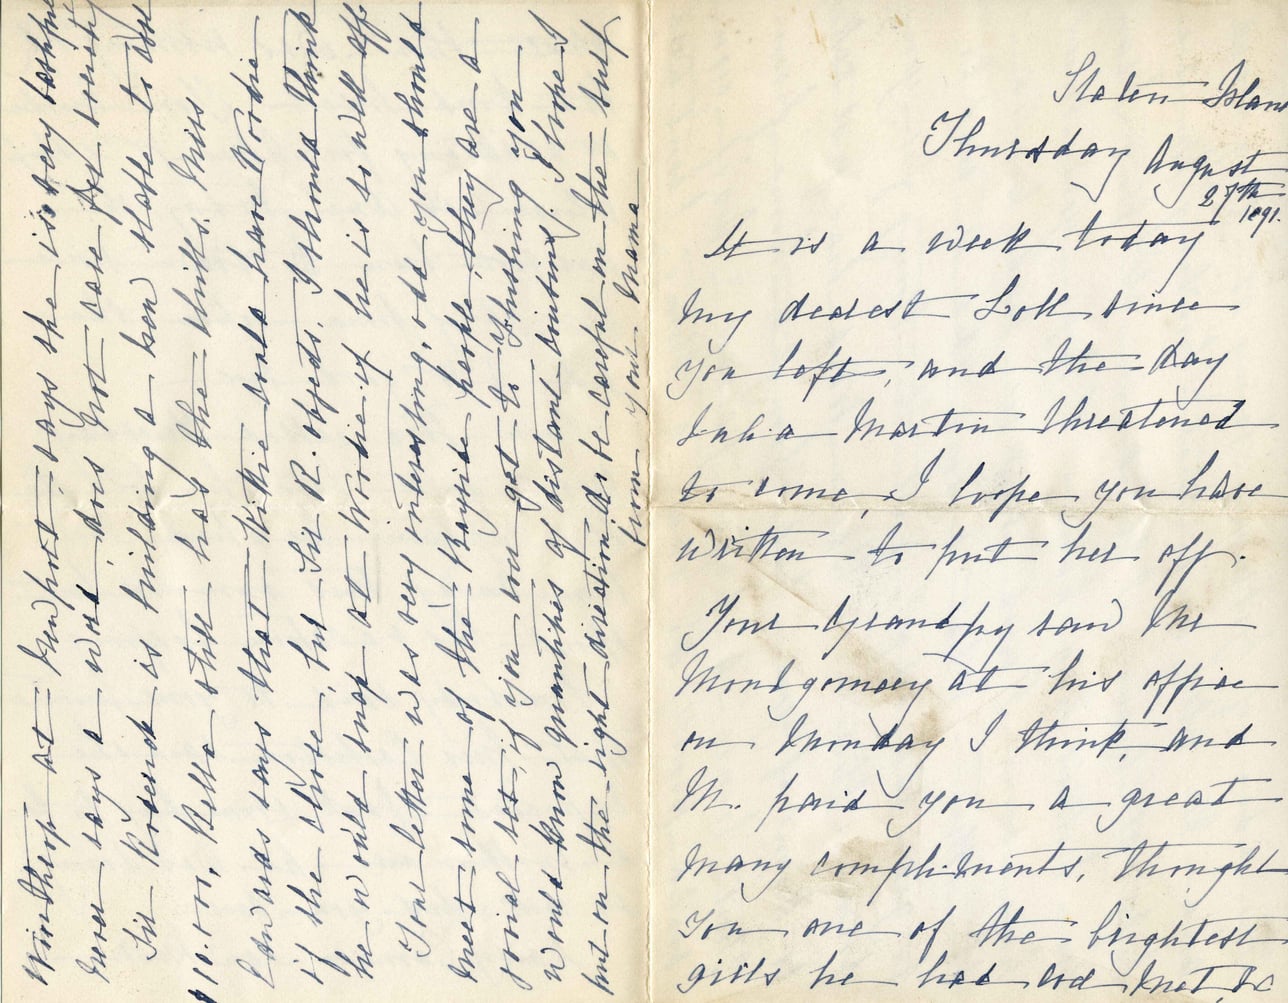 Staten Island
Thursday August
27th
1891.
It is a week today
My dearest Loll since
you left, and the day
Martin threatened
to come, I hope you have
written to put her off.
Your Grandpy saw Mr
Montgomery at his office
on Monday I think, and
M. paid you a great
many compliments, thought
you one of the brightest
girls he had ever met, &c
Winthrop at Newport, says she is very bashful
never says a word, does not care for society
Sir Roderick is building a hen stable to cost
$10.00, Bella still has the chills. Miss
Edwards says that Kittie could have Woodie
if she chose, but Sir R. objects, I should think
he would snap at Woodie if he is so well off
Your letter was very interesting, odd you should
meet some of the Bayside people, they are a
jovial set, if you ever get to Flushing you
would know quantities of distant cousins! I hope I
put on the right direction, do be careful on the surf
from your Mama